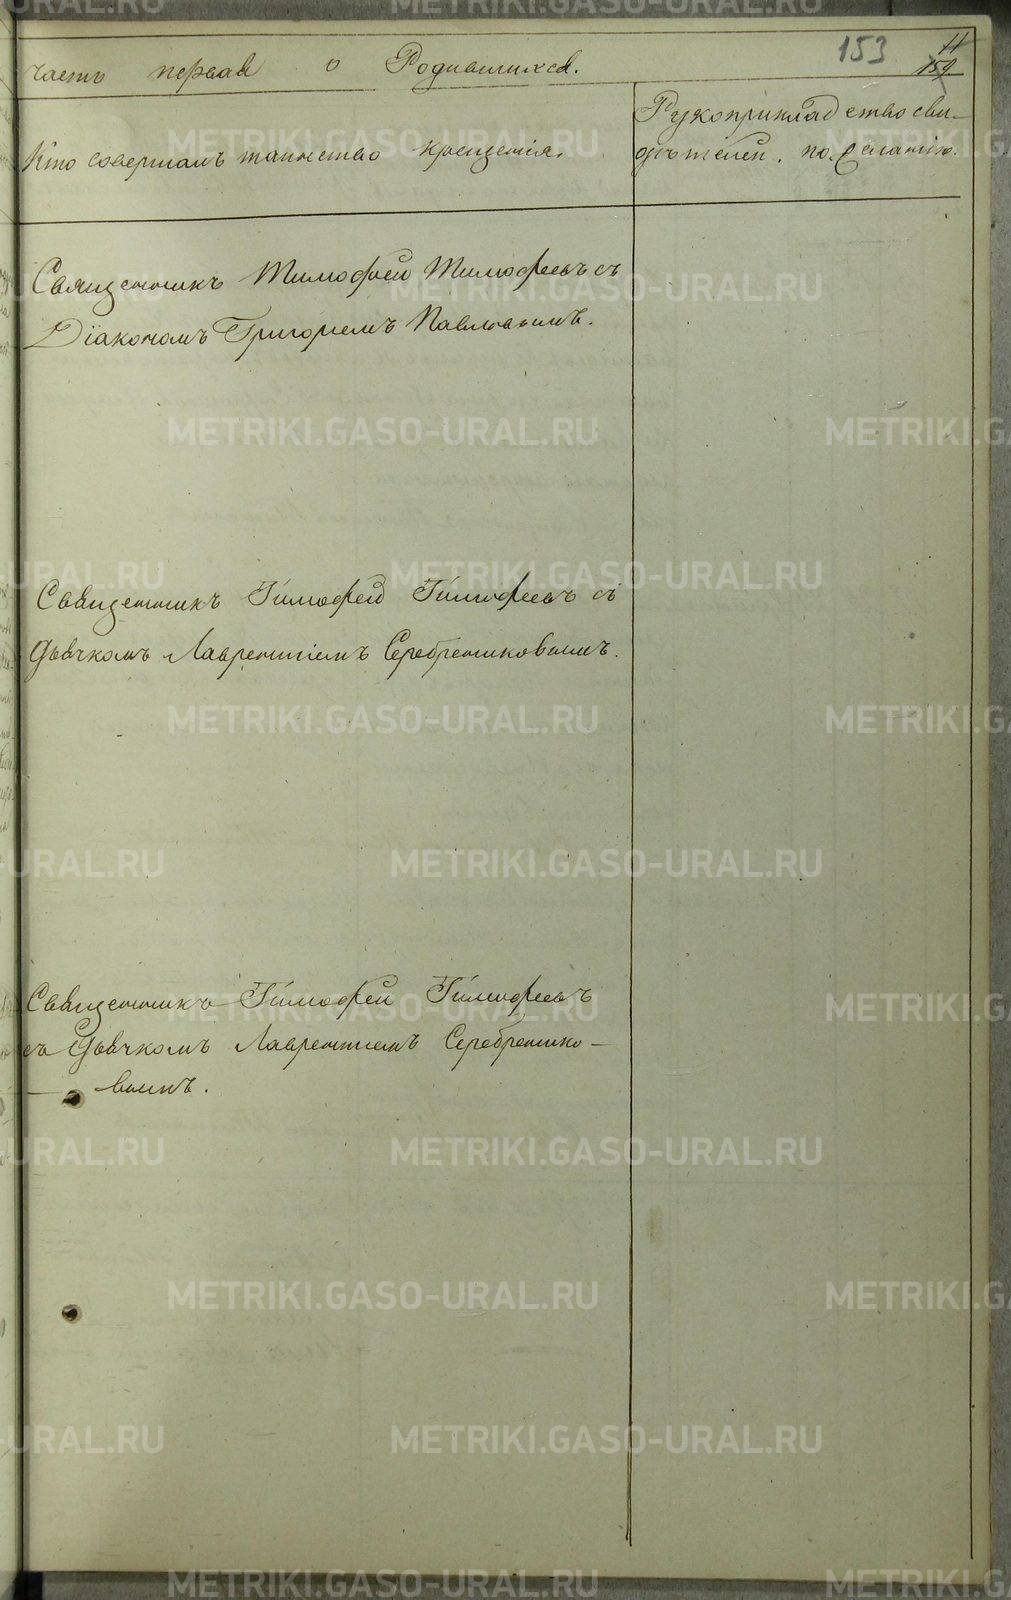 153 11
159
часть первая о Родившихся.
Кто совершалъ таинство крещенія.
Рукоприкладство сви-
дѣтелей по желанію.
Священникъ Тимофей Тимофеевъ съ
Діакономъ Григоріемъ Павловымъ.
Священникъ Тимофей Тимофеевъ съ
Дьячкомъ Лаврентіемъ Серебренниковымъ.
Священникъ Тимофей Тимофеевъ
съ Дьячкомъ Лаврентіемъ Серебренико-
вымъ.
METRIKI.GASO-URAL.RU